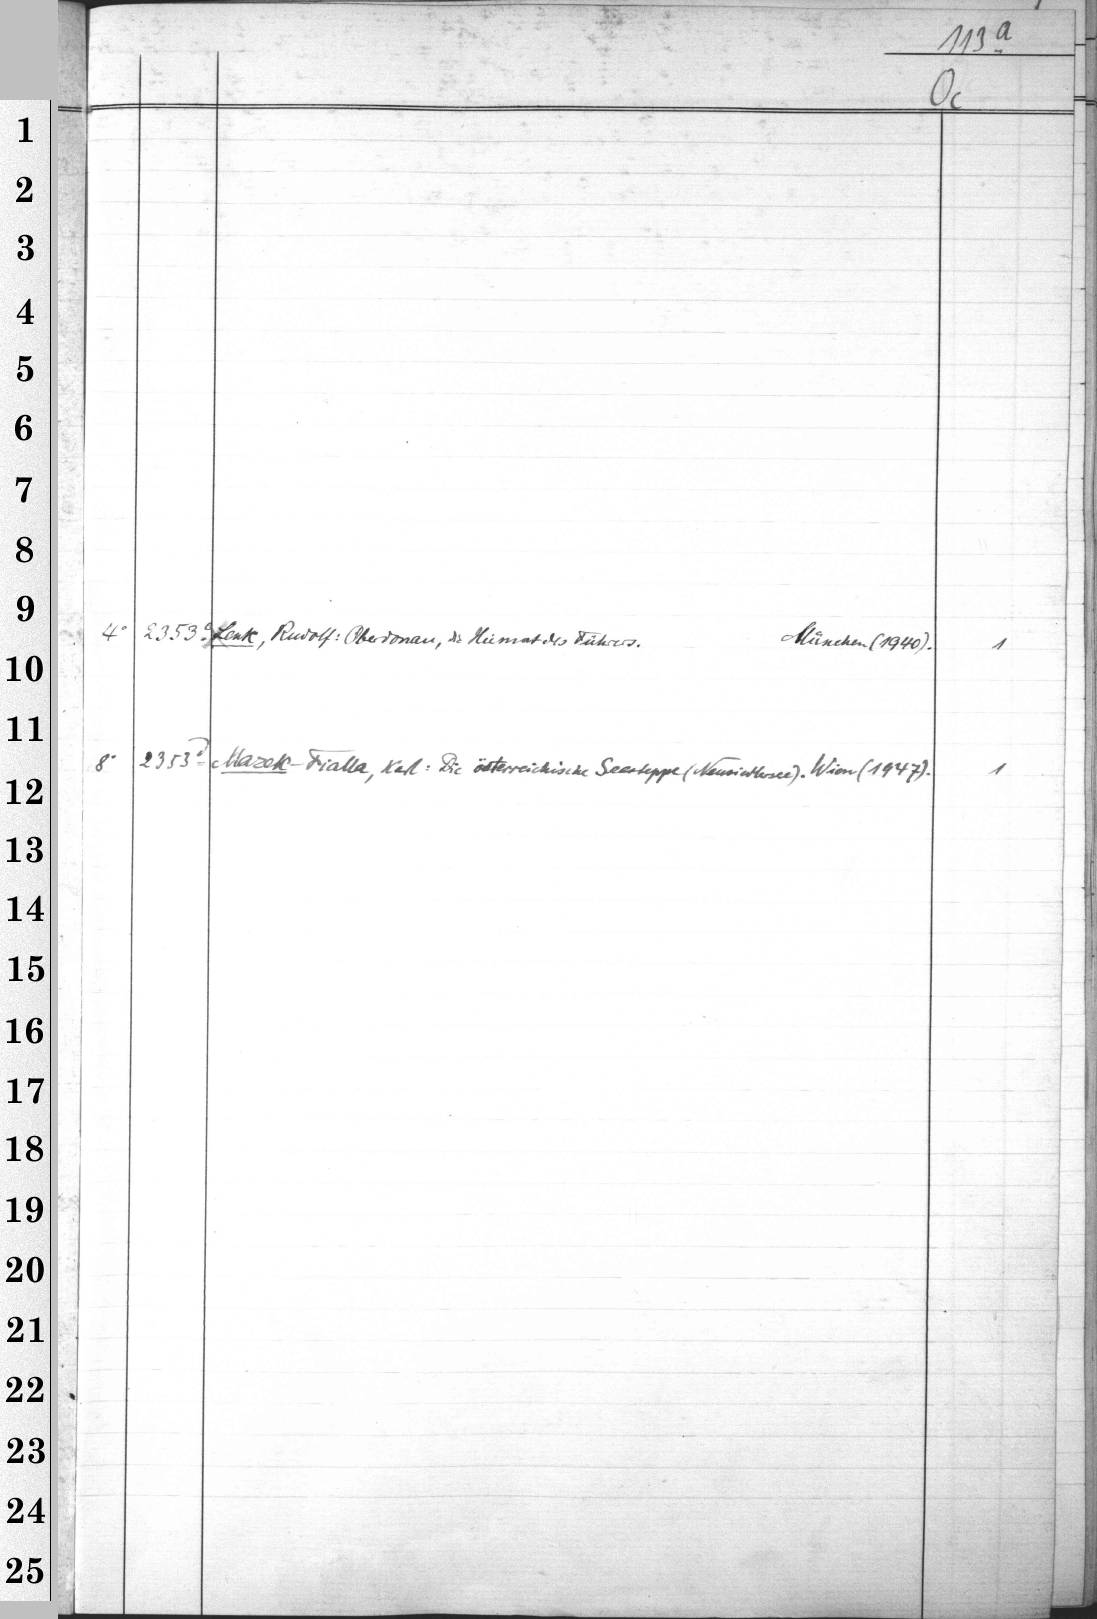 113 a
Oc
1
2
3
4
5
6
7
8
9
4° 2353 c Lenk, Rudolf: Oberdonau, die Heimat des Führers. München (1940). 1
10
11
8° 2353 d Mazek-Fialla, Karl: Die österreichische Seesteppe (Neusiedlersee). Wien (1947). 1
12
13
14
15
16
17
18
19
20
21
22
23
24
25